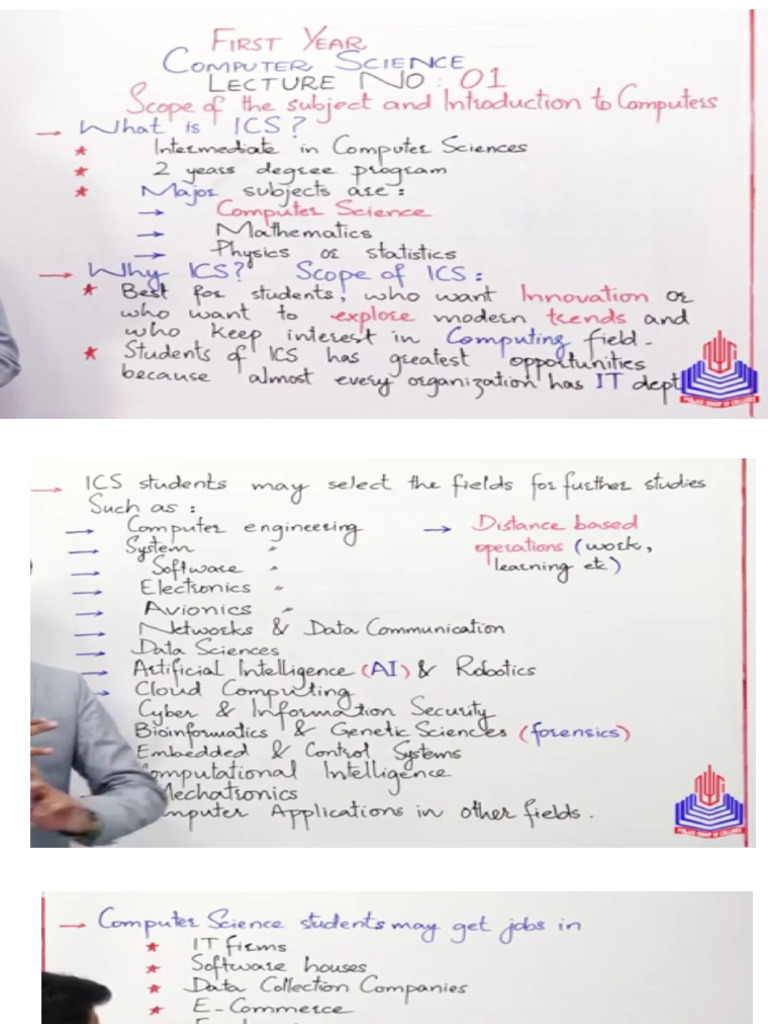 FIRST YEAR
COMPUTER SCIENCE
LECTURE NO: 01
Scope of the subject and Introduction to Computers
→ What is ICS?
★ Intermediate in Computer Sciences
★ 2 years degree program
★ Major subjects are:
→ Computer Science
→ Mathematics
→ Physics or statistics
→ Why ICS? Scope of ICS:
★ Best for students, who want Innovation or
who want to explore modern trends and
who keep interest in Computing field.
★ Students of ICS has greatest opportunities
because almost every organization has IT dept
PUNJAB GROUP OF COLLEGES
→ ICS students may select the fields for further studies
Such as:
→ Computer engineering
→ System "
→ Software "
→ Electronics "
→ Avionics "
→ Networks & Data Communication
→ Data Sciences
→ Artificial Intelligence (AI) & Robotics
→ Cloud Computing
Cyber & Information Security
Bioinformatics & Genetic Sciences (forensics)
Embedded & Control Systems
Computational Intelligence
Mechatronics
mputer Applications in other fields.
→ Distance based
operations (work,
learning etc)
PUNJAB GROUP OF COLLEGES
→ Computer Science students may get jobs in
★ IT firms
★ Software houses
★ Data Collection Companies
★ E-Commerce